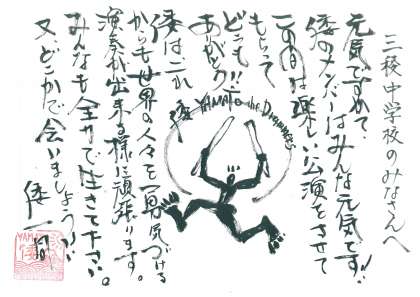 三校中学校のみなさんへ
元気ですかて。
倭のメンバーはみんな元気です!!
この間は楽しい公演をさせて
もらって
どうも!!
ありがとう!!
倭はこれ
からも世界の人々を勇気づける
演奏が出来る様に頑張ります。
みんなも全力で生きて下さい。
又、どこかで会いましょう!!
倭一同
YAMATO the Drummers
倭
YAMATO